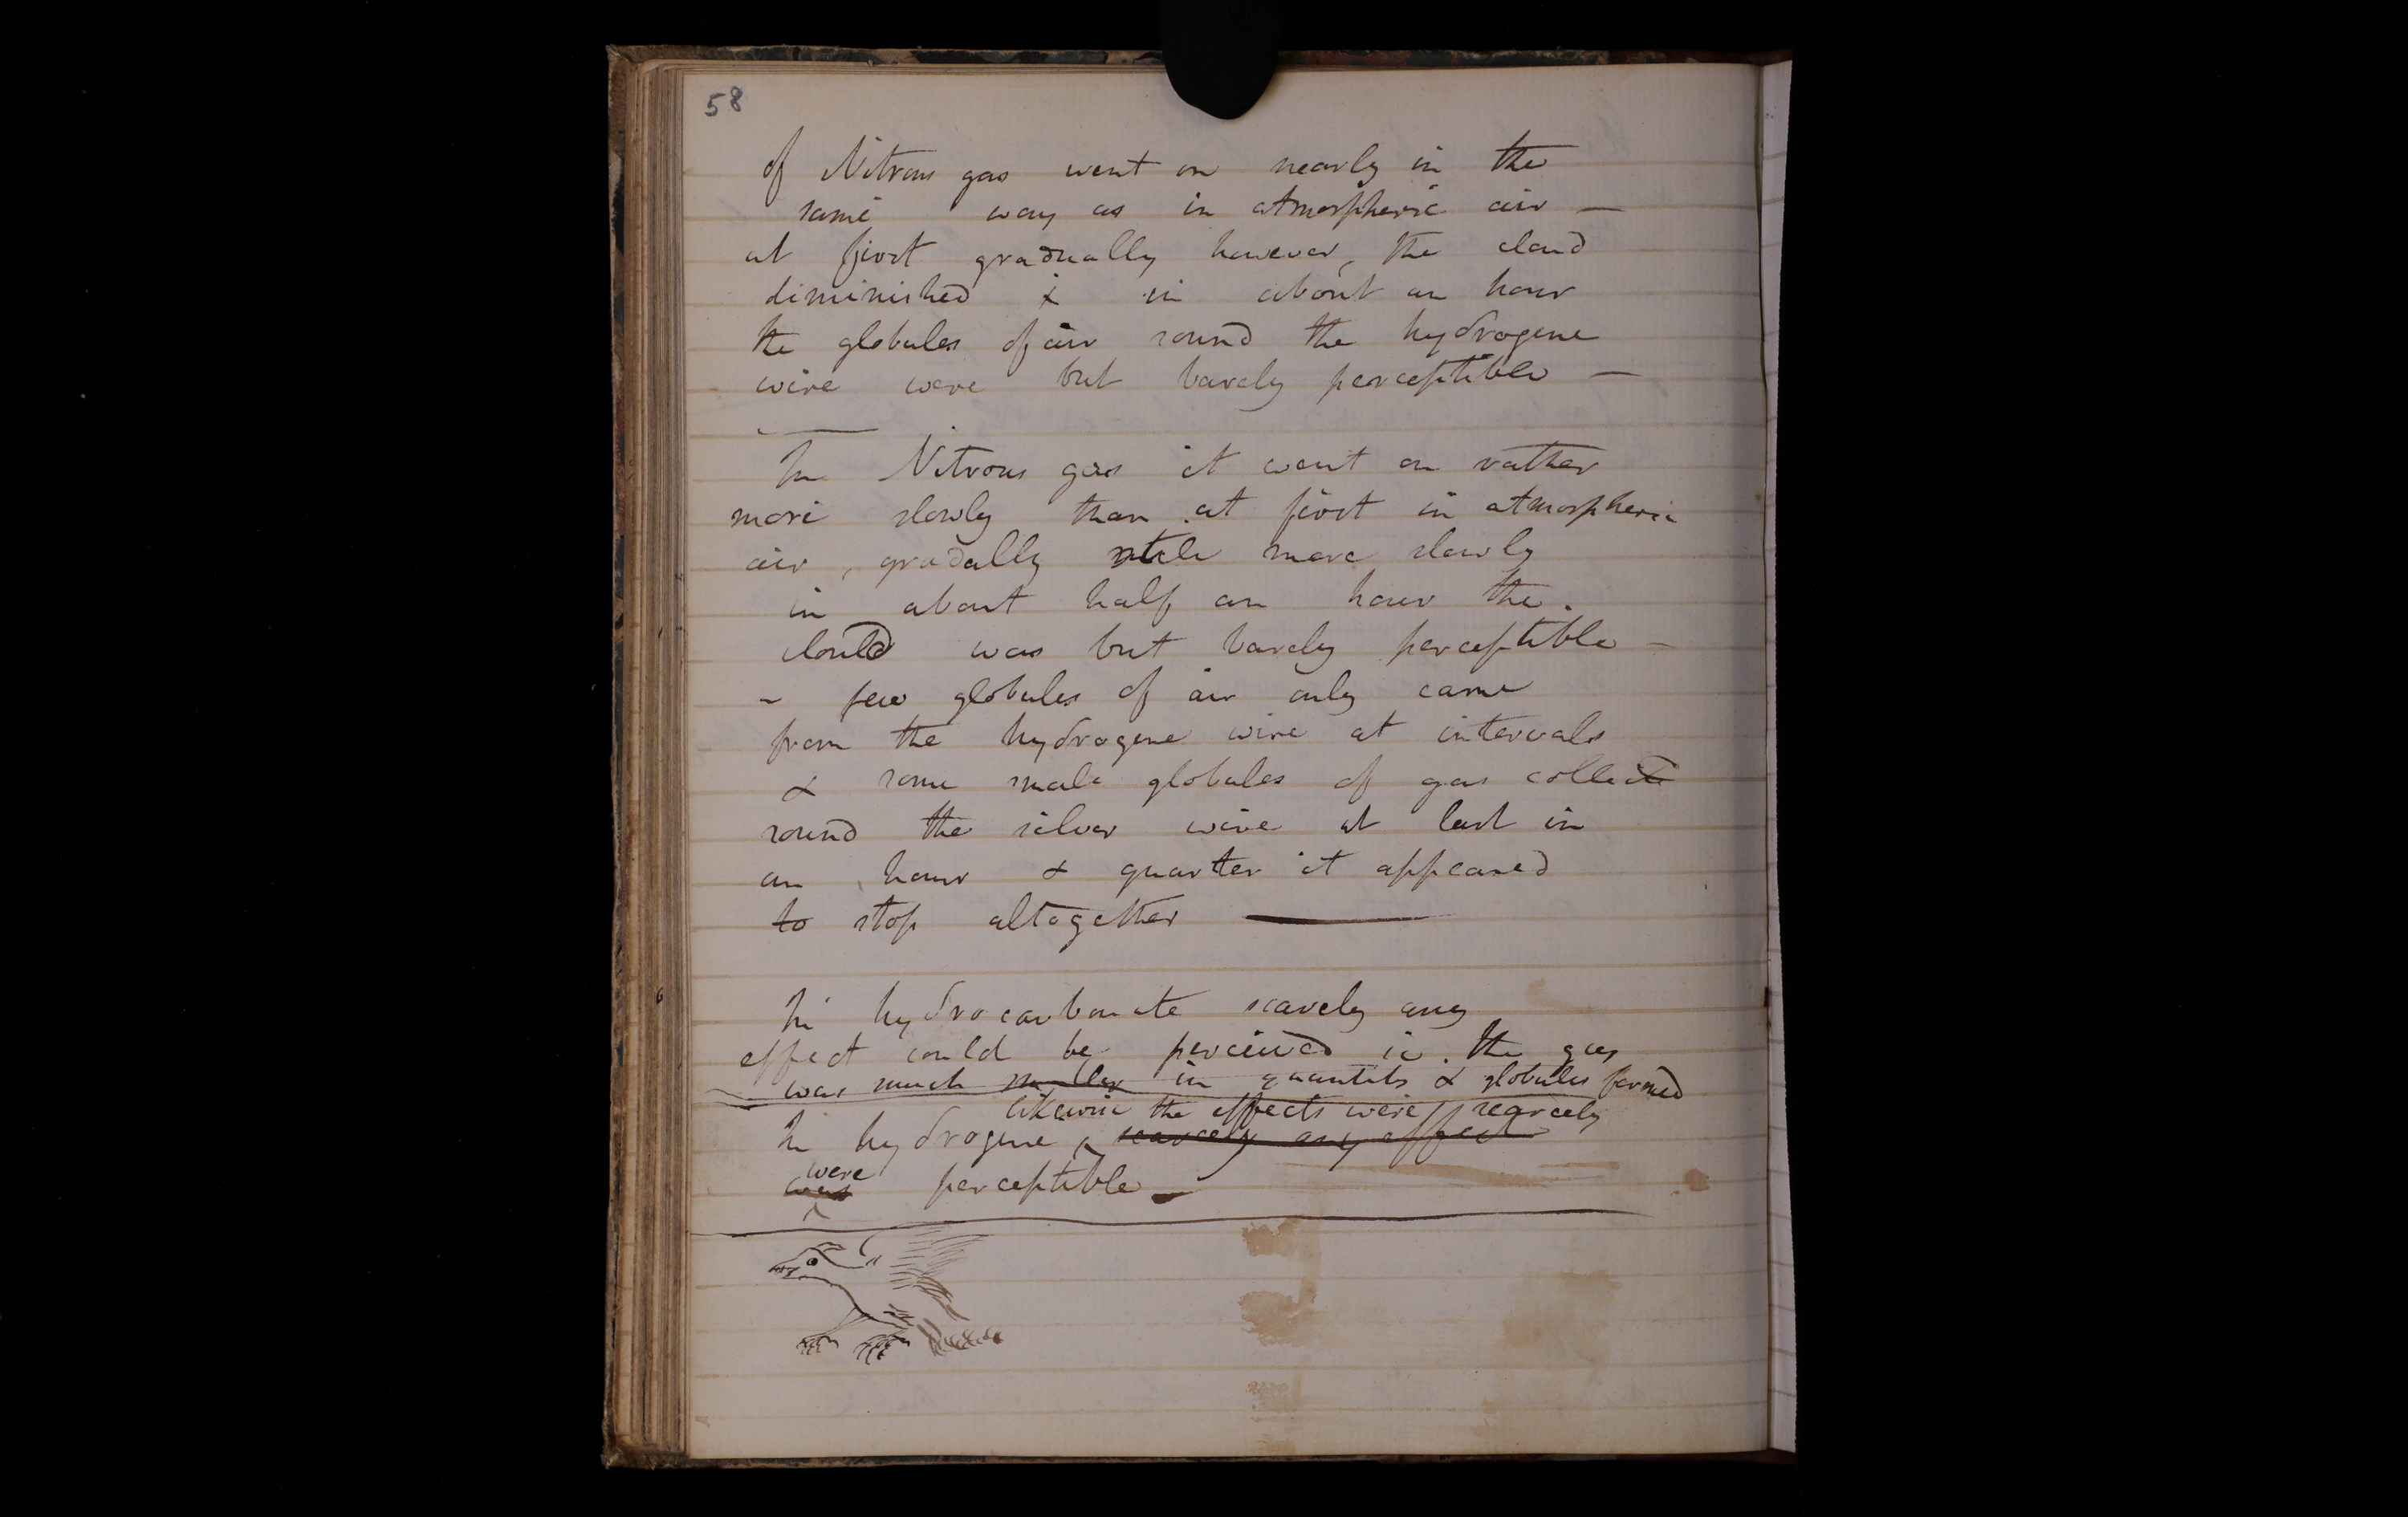 58
of Nitrous gas went on nearly in the
same way as in atmospheric air —
at first gradually however, the cloud
diminished & in about an hour
the globules of air round the hydrogene
wire were but barely perceptible —
In Nitrous gas it went on rather
more slowly than at first in atmospheric
air, gradally still more slowly
in about half an hour the
clould was but barely perceptible —
- few globules of air only came
from the hydrogene wire at intervals
& some small globules of gas collect
round the silver wire at last in
an hour & quarter it appeared
to stop altogether —
In hydrocarbonate scarcely any
effect could be perceived ie. the gas
was much smaller in quantity & globules formed
likewise the effects were scarcely
In hydrogene ^ scarcely any effect
were
was perceptible